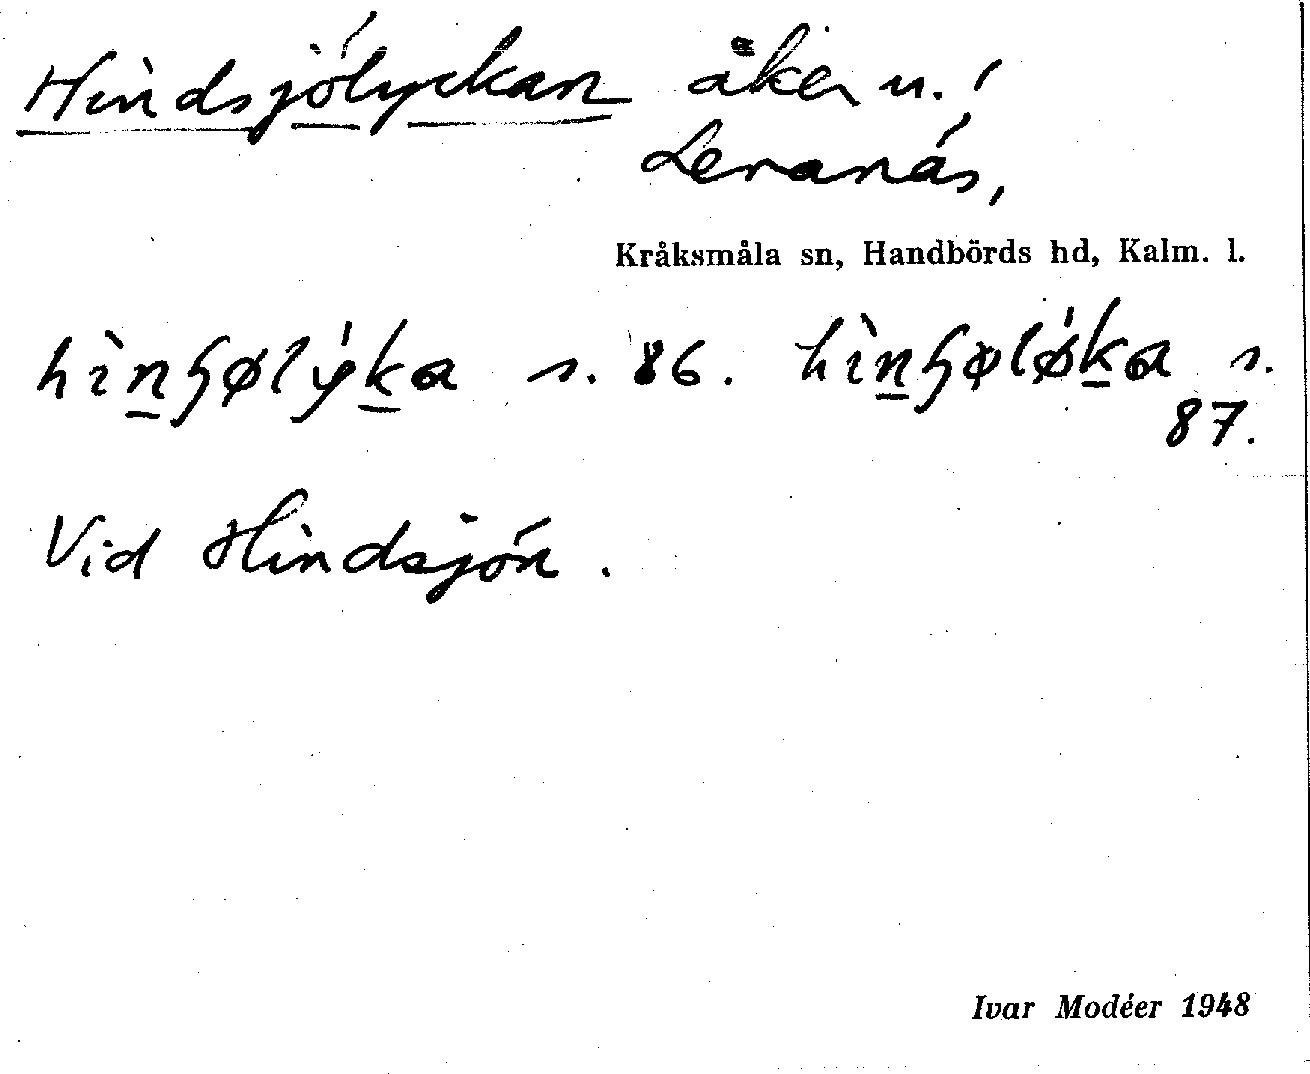 Hindsjölyckan åker u.
Levanäs,
Kråksmåla sn, Handbörds hd, Kalm. l.
hìn̲ɧøly̍k̲a s. 86. hìn̲ɧøløḱ̲a s.
87.
Vid Hindsjön.
Ivar Modéer 1948